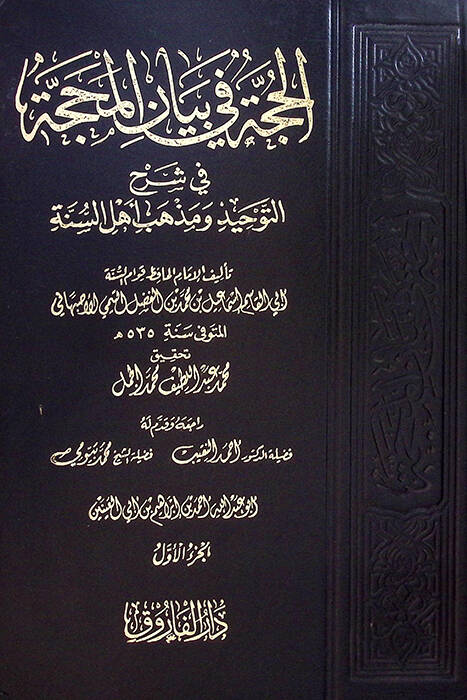 الحُجَّة في بَيَان المَحَجَّة
في شَرْح
التَّوحِيدِ وَمَذْهَبِ أَهْلِ السُّنَّة
تأليف الإمام الحافظ قوام السُّنة
أبي القاسم إسماعيل بن محمد بن الفضل التيمي الأصبهاني
المتوفى سنة ٥٣٥ هـ
تحقيق
محمد عبد اللطيف محمد الجمل
راجعه وقدم له
فضيلة الدكتور أحمد النقيب فضيلة الشيخ محمد بيومي
أبو عبد الله أحمد بن إبراهيم بن أبي العينين
الجزء الأول
دار الفاروق